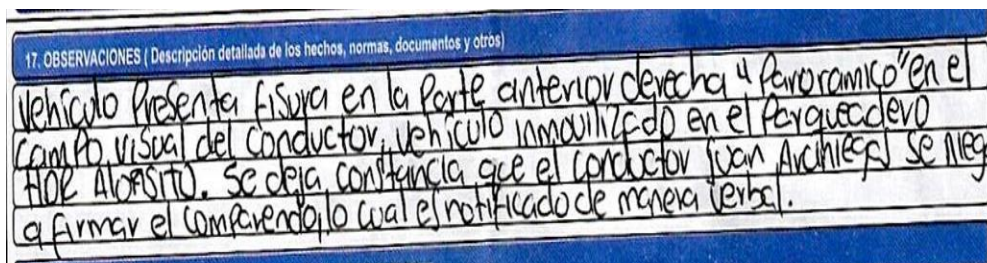 17. OBSERVACIONES ( Descripción detallada de los hechos, normas, documentos y otros)
Vehículo Presenta fisura en la Parte anterior derecha "Panoramico" en el
campo visual del conductor, vehículo inmovilizado en el Parqueadero
Se deja constancia que el conductor Juan Arciniegas se nieg
a firmar el comparendo, lo cual es notificado de manera verbal.